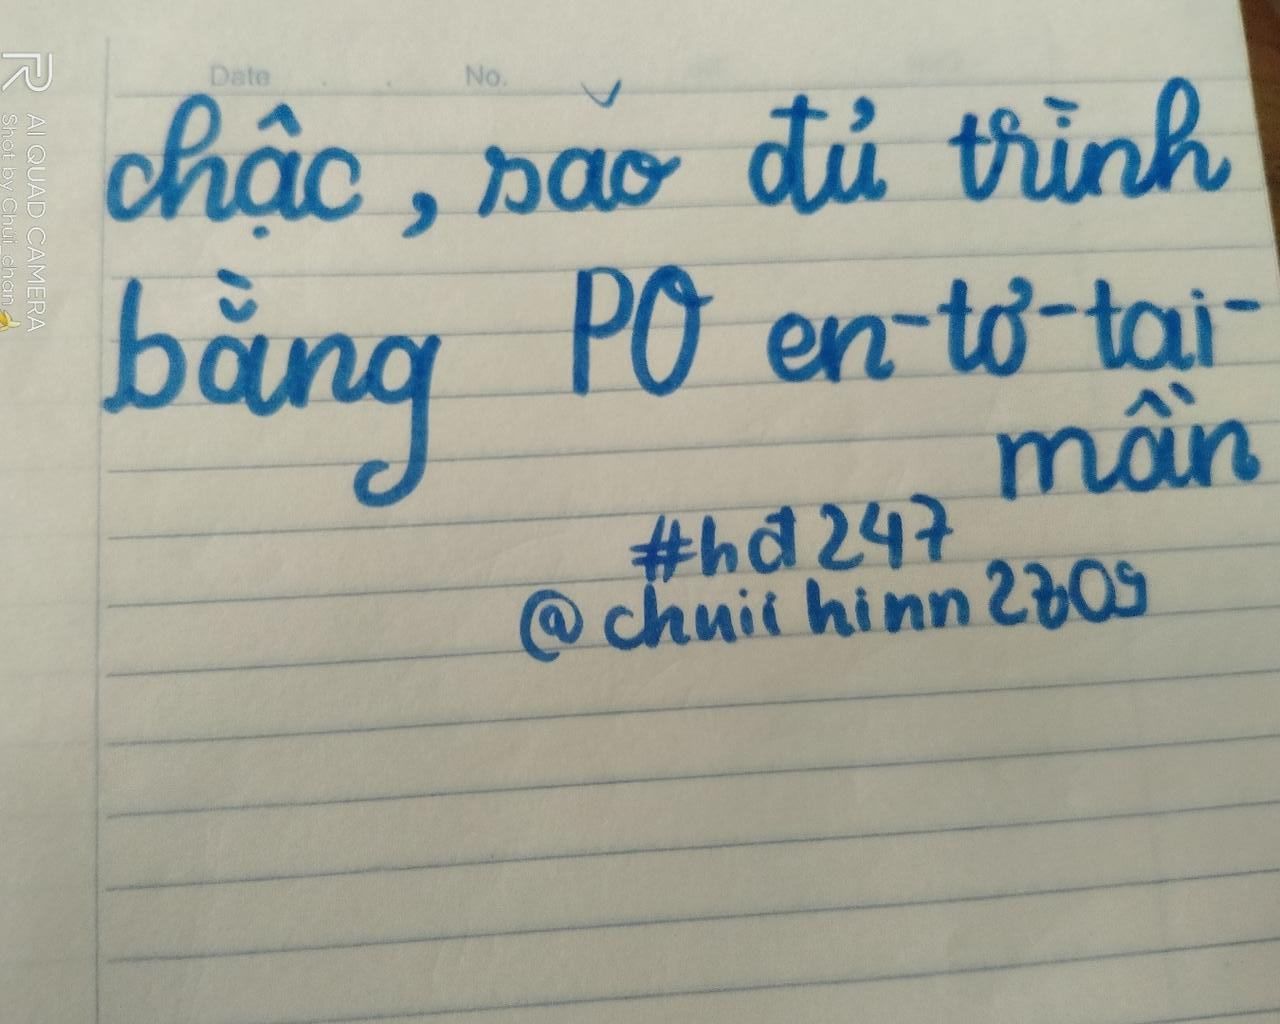 Date No.
chậc, sao đủ trình
bằng PO en-tơ-tai-
mần
#hd247
@chuiihinn2709
AI QUAD CAMERA
Shot by Chui_chan🍌